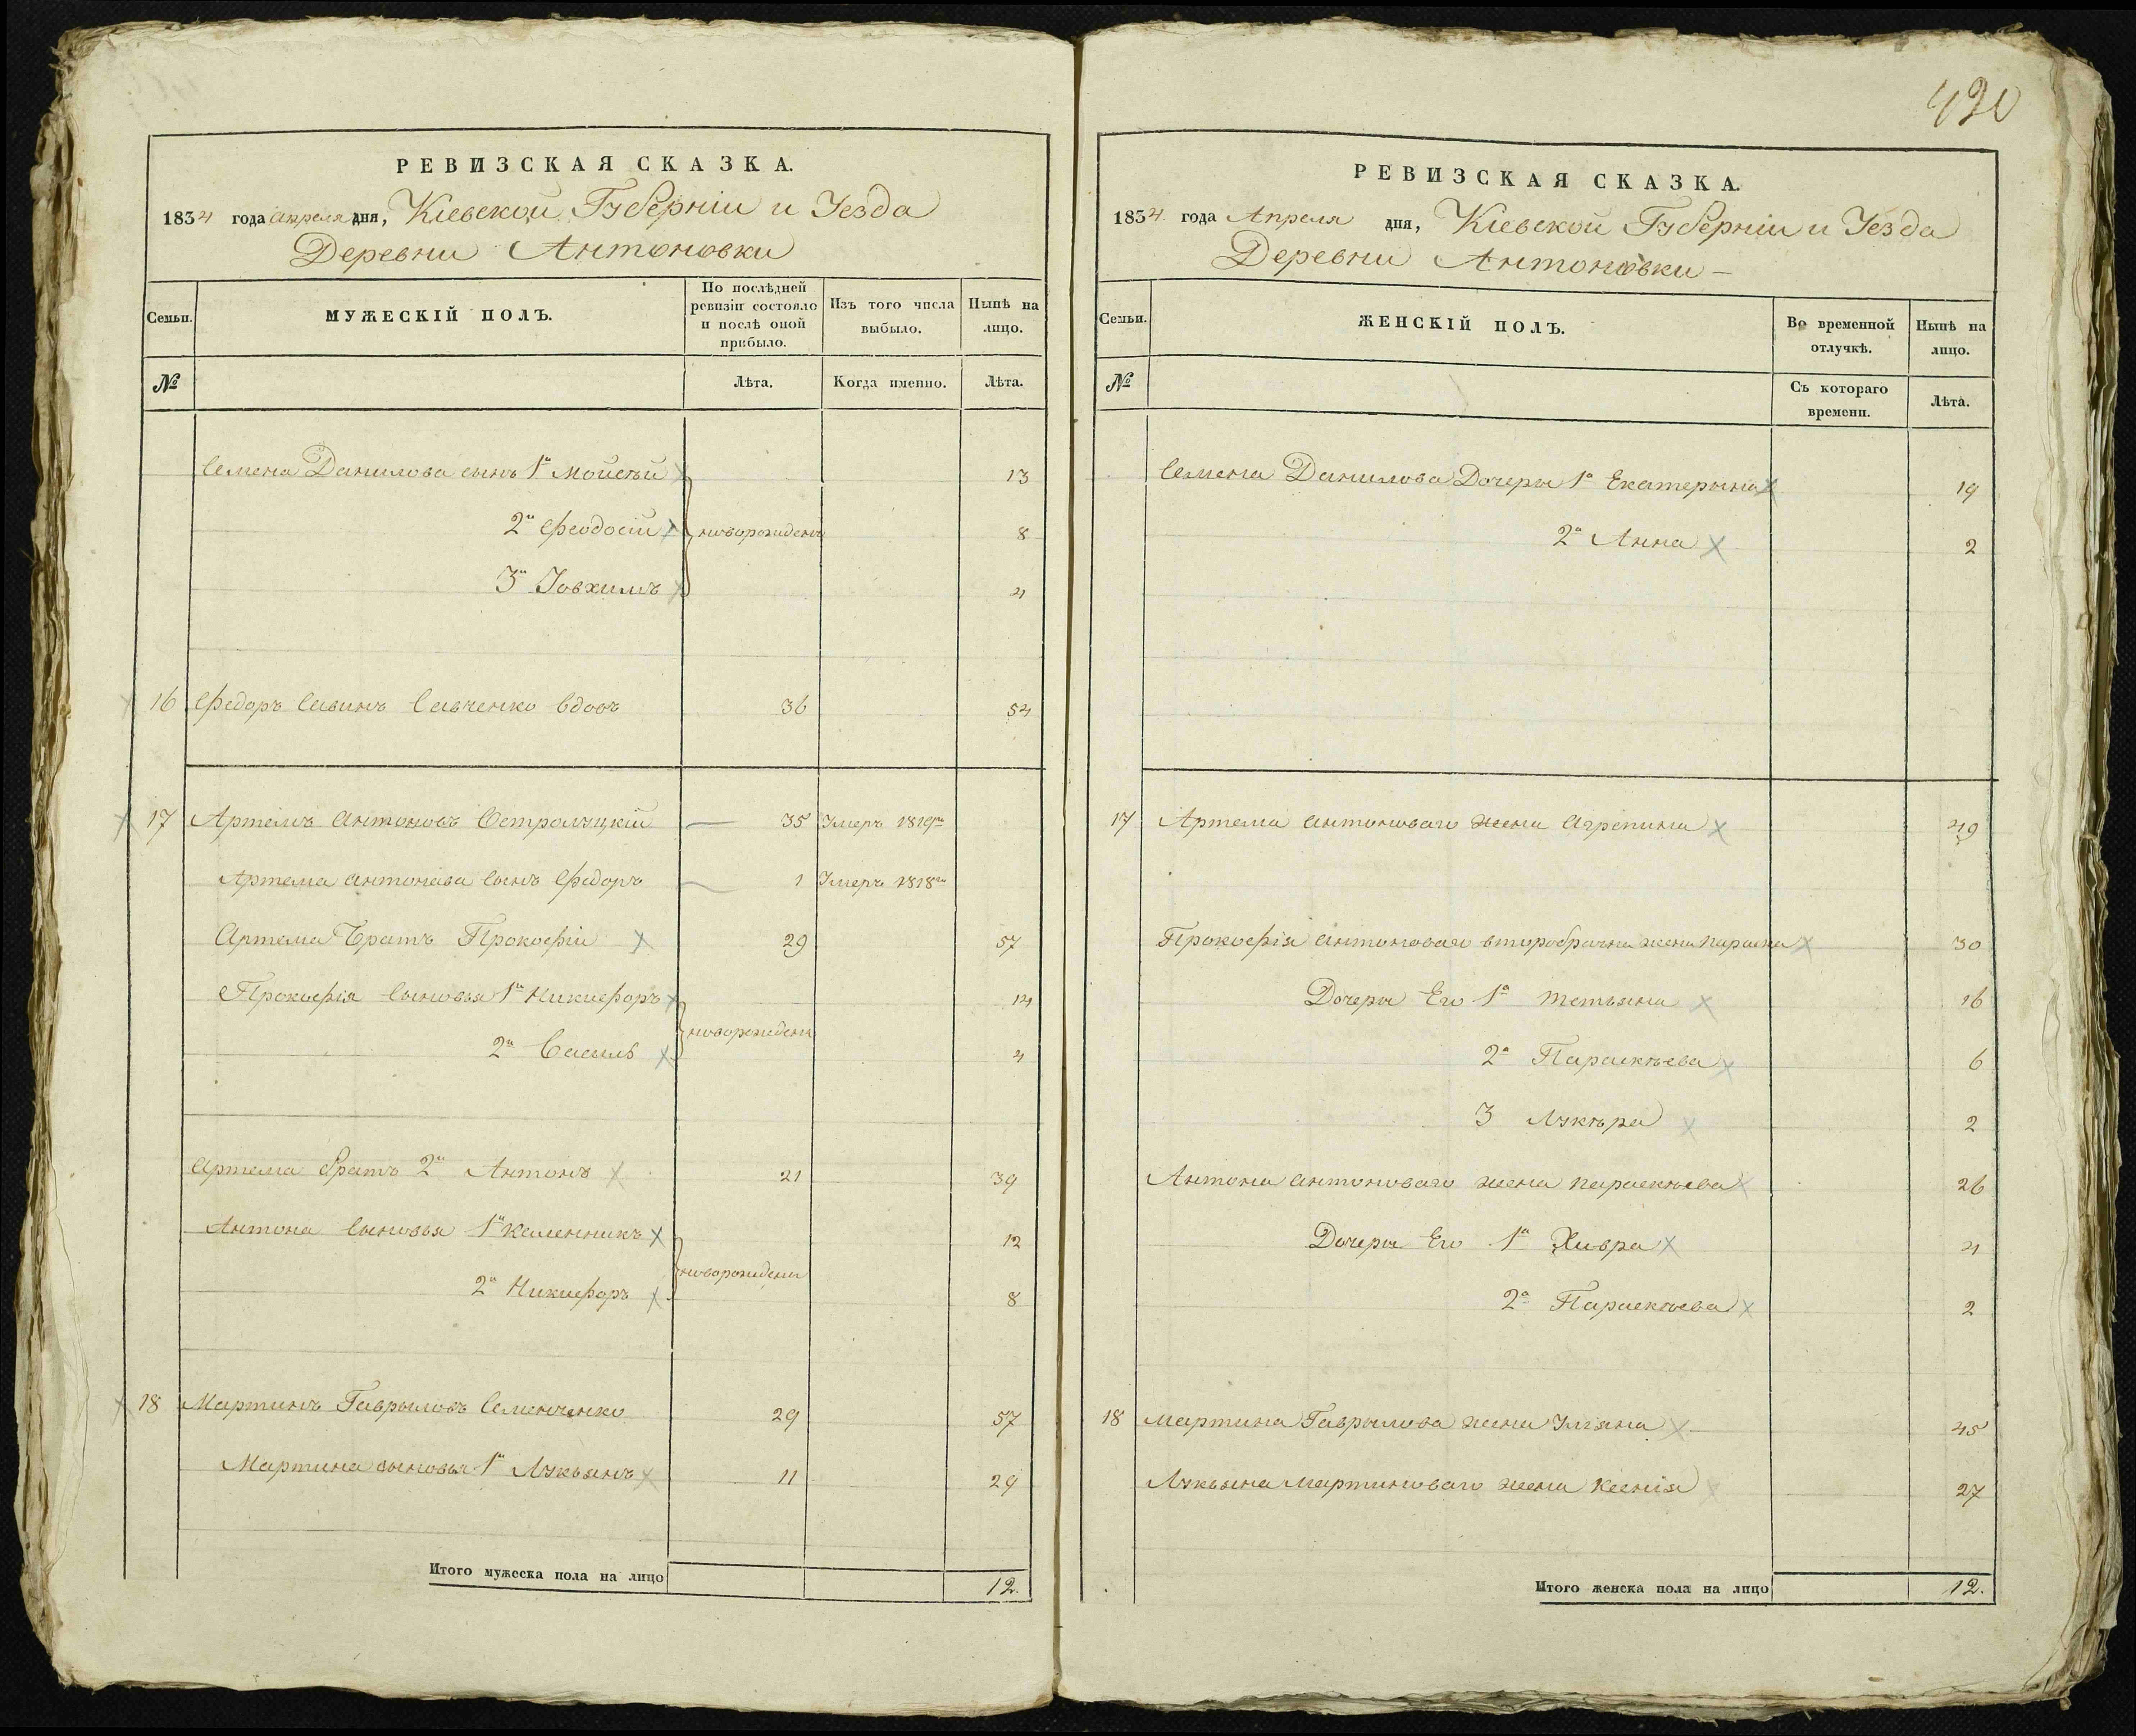 420
РЕВИЗСКАЯ СКАЗКА.
1834 года апреля дня, Кіевской Губерніи и Уезда
Деревни Антоновки
Семьи.
МУЖЕСКІЙ ПОЛЪ.
По послѣдней ревизіи состояло и послѣ оной прибыло.
Изъ того числа выбыло.
Нынѣ на лицо.
№
Лѣта.
Когда именно.
Лѣта.
Семена Данилова сынъ 1й Мойсѣй 13
2й Феодосій новорожден 8
3й Іовхимъ 4
16 Федоръ Савинъ Савченко вдовъ 36 54
17 Артемъ Антоновъ 35 Умеръ 1819го
Артема Антонова сынъ Федоръ 1 Умеръ 1818го
Артема Братъ Прокофій 29 57
Прокофія сыновья 1й Никифоръ 14
новорождены
2й Василь 4
Артема братъ 2й Антонъ 21 39
Антона сыновья 1й Каленникъ 12
новорождены
2й Никифоръ 8
18 Мартинъ Гаврыловъ Семенченко 29 57
Мартина сыновья 1й Лукьянъ 11 29
Итого мужеска пола на лицо 12.
РЕВИЗСКАЯ СКАЗКА.
1834. года Апреля дня, Кіевской Губерніи и Уезда
Деревни Антоновки
Семьи.
ЖЕНСКІЙ ПОЛЪ.
Во временной отлучкѣ.
Нынѣ на лицо.
№
Съ котораго времени.
Лѣта.
Семена Данилова Дочеры 1а Екатерына 19
2а Анна 2
17 Артема Антоноваго жена Агрепина 49
Прокофія Антоноваго второбрачна жена Параска 30
Дочеры Его 1а Тетьяна 16
2а Параскѣева 6
3 Лукѣра 2
Антона Антоноваго жена Параскѣева 26
Дочеры Его 1а Хивра 4
2а Параскѣева 2
18 Мартина Гаврылова жена Уляна 45
Лукьяна Мартиноваго жена Ксенія 27
Итого женска пола на лицо 12.